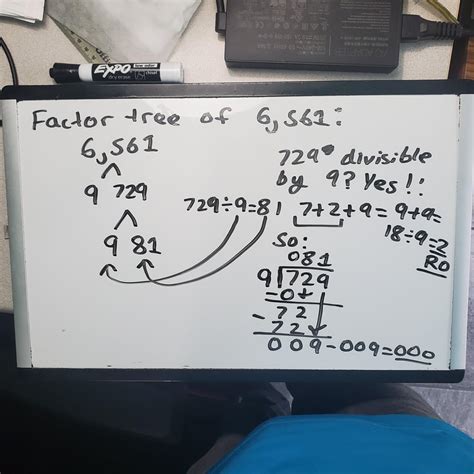 EXPO
Factor tree of 6,561:
6,561
9 729
9 81
729 divisible
by 9? Yes!!
729÷9=81
7+2+9=9+9=
18÷9=2
R0
So:
081
9 729
-0
72
- 72
009-009=000